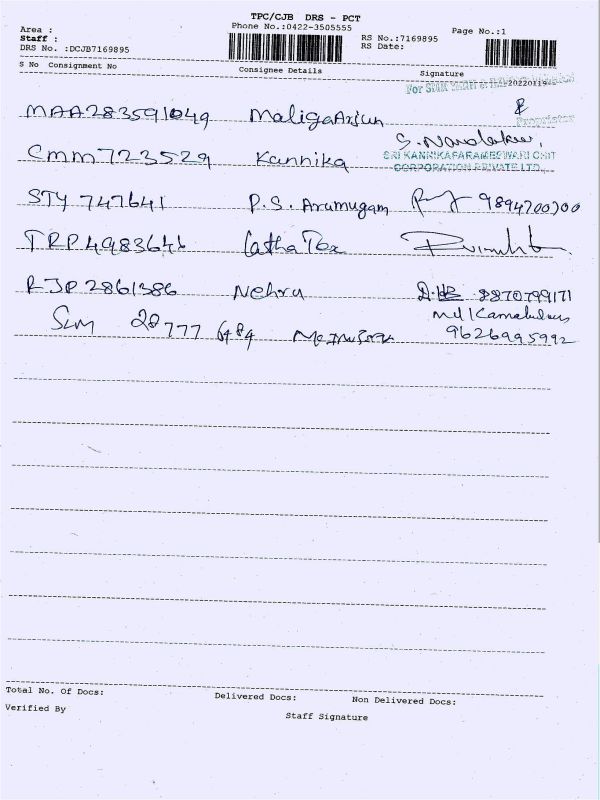 TPC/CJB DRS - PCT
Area :
Phone No.:0422-3505555
Page No.:1
Staff :
RS No.:7169895
DRS No. :DCJB7169895
RS Date:
S No Consignment No
Consignee Details
Signature
MAA283591049 MaligaArjun
Proprietor
CMM723529 Kannika
SRI KANNIKAPARAMESWARI CHIT
CORPORATION PRIVATE LTD.,
STY 747641 P.S. Arumugam 9894700700
TRP4983646 Latha Tex
RJP2861386 Nehru 8870799171
SLM 28777 6484 9626995992
Total No. Of Docs:
Delivered Docs:
Non Delivered Docs:
Verified By
Staff Signature